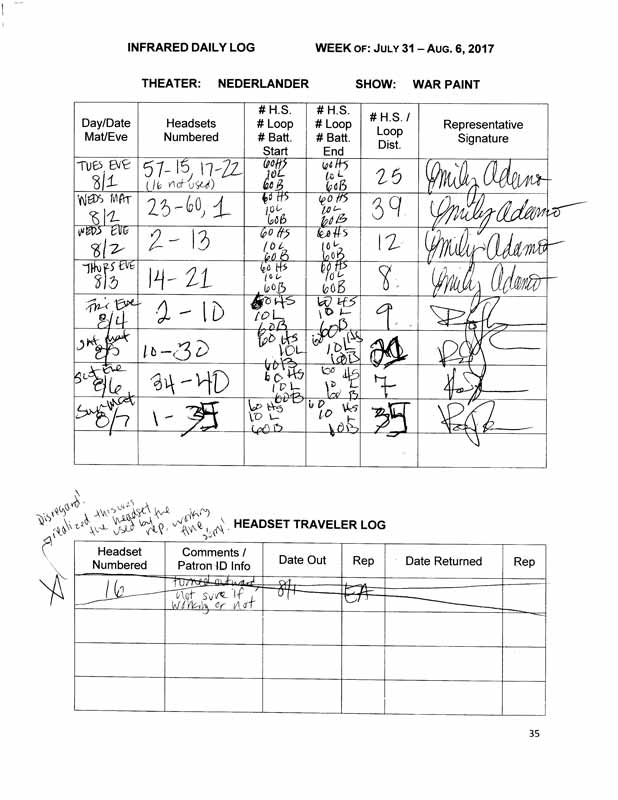 INFRARED DAILY LOG WEEK OF: JULY 31 – AUG. 6, 2017
THEATER: NEDERLANDER SHOW: WAR PAINT
Day/Date Mat/Eve | Headsets Numbered | # H.S. # Loop # Batt. Start | # H.S. # Loop # Batt. End | # H.S. / Loop Dist. | Representative Signature
TUES EVE 8/1 | 57-15, 17-22 (16 not used) | 60HS 10L 60B | 60HS 10L 60B | 25 | Emily Adamo
WEDS MAT 8/2 | 23-60, 1 | 60HS 10L 60B | 60HS 10L 60B | 39 | Emily Adamo
WEDS EVE 8/2 | 2-13 | 60HS 10L 60B | 60HS 10L 60B | 12 | Emily Adamo
THURS EVE 8/3 | 14-21 | 60HS 10L 60B | 60HS 10L 60B | 8 | Emily Adamo
Fri Eve 8/4 | 2-10 | 60HS 10L 60B | 60HS 10L 60B | 9
Sat Mat 8/5 | 10-30 | 60HS 10L 60B | 60HS 10L 60B
Sat Eve 8/6 | 34-40 | 60HS 10L 60B | 60HS 10L 60B | 7
Sun Mat 8/7 | 1-35 | 60HS 10L 60B | 60 HS 10 L 60B | 35
Disregard!
realized this was
the headset
used by the
rep. working
fine, sorry!
HEADSET TRAVELER LOG
Headset Numbered | Comments / Patron ID Info | Date Out | Rep | Date Returned | Rep
16 | turned outward, not sure if working or not | 8/1 | EA
35